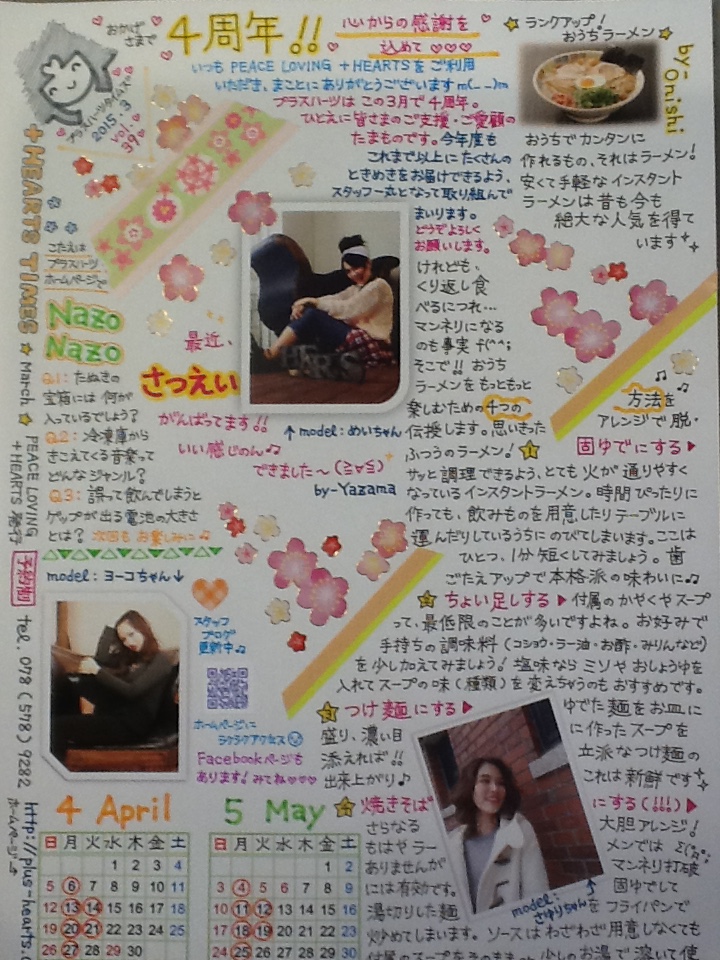 おかげさまで
4周年!!
心からの感謝を
込めて♡♡♡
いつも PEACE LOVING +HEARTSを ご利用
いただき、まことにありがとうございますm(_ _)m
プラスハーツは この3月で 4周年。
ひとえに皆さまのご支援・ご愛顧の
たまものです。今年度も
これまで以上に たくさんの
ときめきをお届けできるよう、
スタッフ一丸となって取り組んで
まいります。
どうぞよろしく
お願いします。
プラスハーツタイムズ
2015.3
vol.39
+HEARTS TIMES ☆ March ☆ PEACE LOVING +HEARTS 発行
予約制 tel. 078 (578) 9282
http://plus-hearts.c
ホームページ→
こたえは
プラスハーツ
ホームページで
Nazo
Nazo
Q1: たぬきの
宝箱には 何が
入っているでしょう?
Q2: 冷凍庫から
きこえてくる音楽って
どんなジャンル?
Q3: 誤って飲んでしまうと
ゲップが出る電池の大きさ
とは? 次回も お楽しみに♫
最近、
さつえい
がんばってます!!
いい感じのん♫
できました〜(≧∀≦)
by-Yazama
↑model: めいちゃん
model: ヨーコちゃん↓
スタッフ
ブログ
更新中♫
ホームページに
ラクラクアクセス
Facebookページも
あります! みてね♡♡♡
4 April
日 月 火 水 木 金 土
1 2 3 4
5 6 7 8 9 10 11
12 13 14 15 16 17 18
19 20 21 22 23 24 25
26 27 28 29 30
5 May
日 月 火 水 木 金 土
1 2
3 4 5 6 7 8 9
10 11 12 13 14 15 16
17 18 19 20 21 22 23
24 25 26 27 28 29 30
☆ランクアップ!
おうちラーメン☆
by-Onishi
おうちでカンタンに
作れるもの、それはラーメン!
安くて手軽な インスタント
ラーメンは 昔も 今も
絶大な人気を得て
います
けれども、
くり返し食
べるにつれ…
マンネリになる
のも事実 f(^^;
そこで!! おうち
ラーメンを もっともっと
楽しむための 4つの
方法を
伝授します。思いきった
アレンジで 脱・
ふつうのラーメン!
☆1 固ゆでにする▶
サッと調理できるよう、とても 火が 通りやすく
なっているインスタントラーメン。時間ぴったりに
作っても、飲みものを 用意したりテーブルに
運んだりしているうちに のびてしまいます。ここは
ひとつ、1分 短くしてみましょう。歯
ごたえアップで 本格派の 味わいに♫
☆2 ちょい足しする▶ 付属の かやくやスープ
って、最低限の ことが 多いですよね。お好みで
手持ちの 調味料 (コショウ・ラー油・お酢・みりんなど)
を 少し加えてみましょう! 塩味なら ミソや おしょうゆを
入れて スープの 味 (種類) を 変えちゃうのも おすすめです。
☆3 つけ麺にする▶ ゆでた 麺を お皿に
盛り、濃い目 に作った スープを
添えれば!! 立派なつけ麺の
出来上がり♪ これは 新鮮です
☆4 焼きそば にする(!!!)▶
さらなる 大胆アレンジ!
もはやラー メンでは
ありませんが マンネリ打破
には有効です。 固ゆでして
湯切りした麺 を フライパンで
炒めてしまいます。ソースは わざわざ 用意しなくても
付属の スープを そのまま… 少しの お湯で 溶いて 使
model:
さゆりちゃん